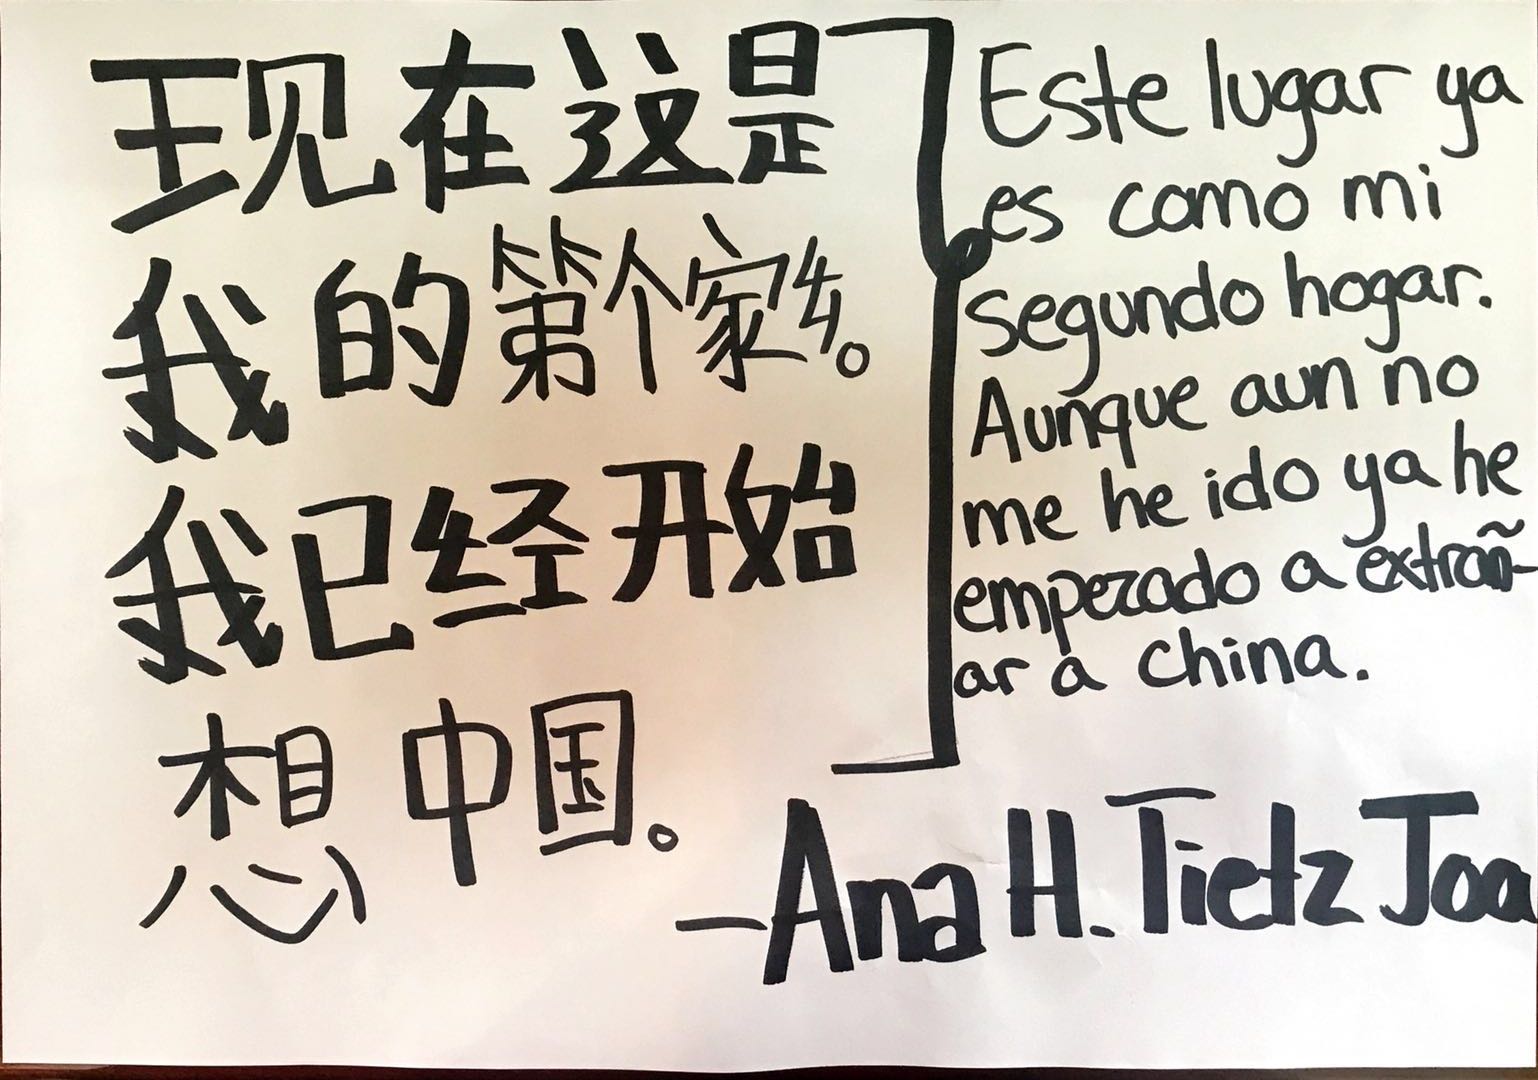 现在这是
我的第个家乡。
我已经开始
想中国。
Este lugar ya
es como mi
segundo hogar.
Aunque aun no
me he ido ya he
empezado a extrañ-
ar a China.
-Ana H. Tietz Joa